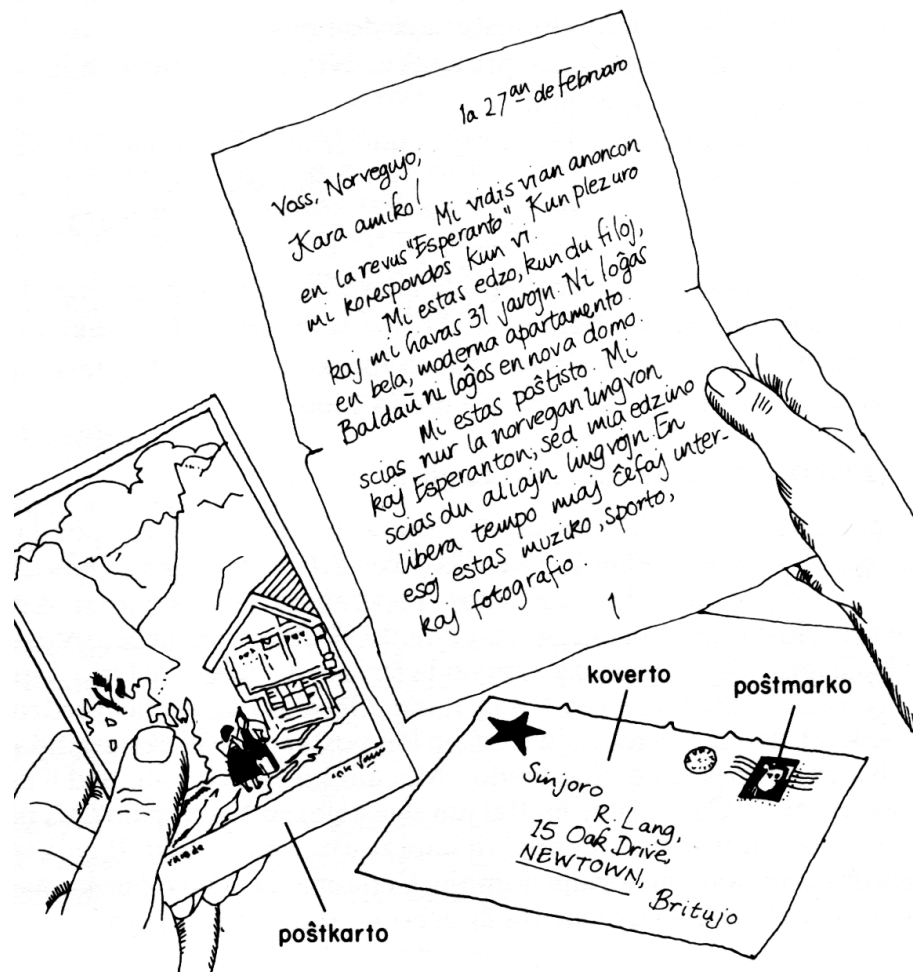 la 27an de Februaro
Voss, Norvegujo,
Kara amiko!
Mi vidis vian anoncon
en la revuo "Esperanto". Kun plezuro
mi korespondos kun vi.
Mi estas edzo, kun du filoj,
kaj mi havas 31 jarojn. Ni loĝas
en bela, moderna apartamento.
Baldaŭ ni loĝos en nova domo.
Mi estas poŝtisto. Mi
scias nur la norvegan lingvon
kaj Esperanton, sed mia edzino
scias du aliajn lingvojn. En
libera tempo miaj ĉefaj inter-
esoj estas muziko, sporto,
kaj fotografio.
1
koverto
poŝtmarko
Sinjoro
R. Lang,
15 Oak Drive,
NEWTOWN,
Britujo
poŝtkarto